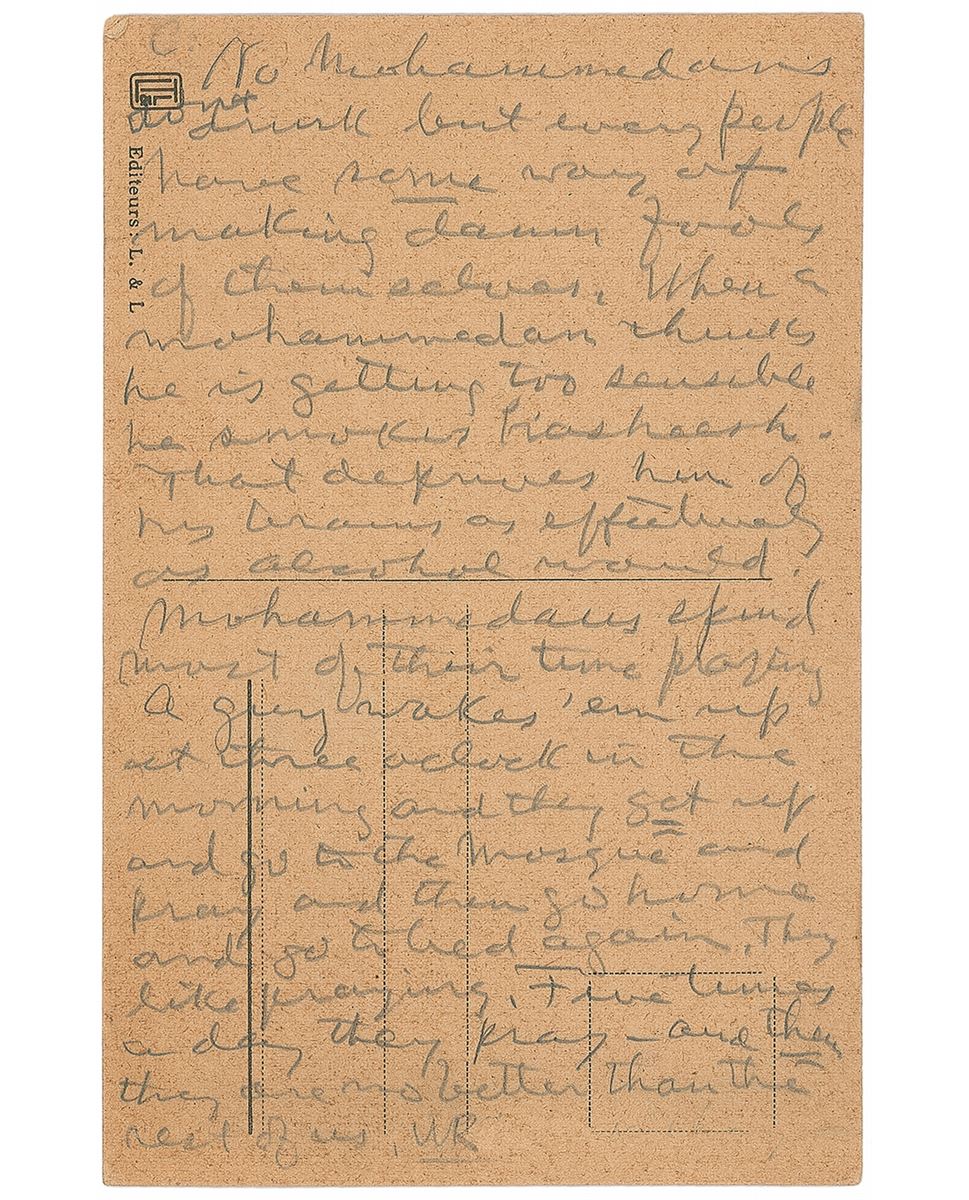 C.
No Mohammedans
dont drink but every people
have some way of
making damn fools
of themselves. When a
mohammedan thinks
he is getting too sensible
he smokes hasheesh.
That deprives him of
his brains as effectively
as alcohol would.
Mohammedans spend
most of their time praying
A guy wakes 'em up
at three oclock in the
morning and they get up
and go to the Mosque and
pray and then go home
and go to bed again. They
like praying. Five times
a day they pray – and then
they are no better than the
rest of us. WR
L & L
Editeurs: L. & L